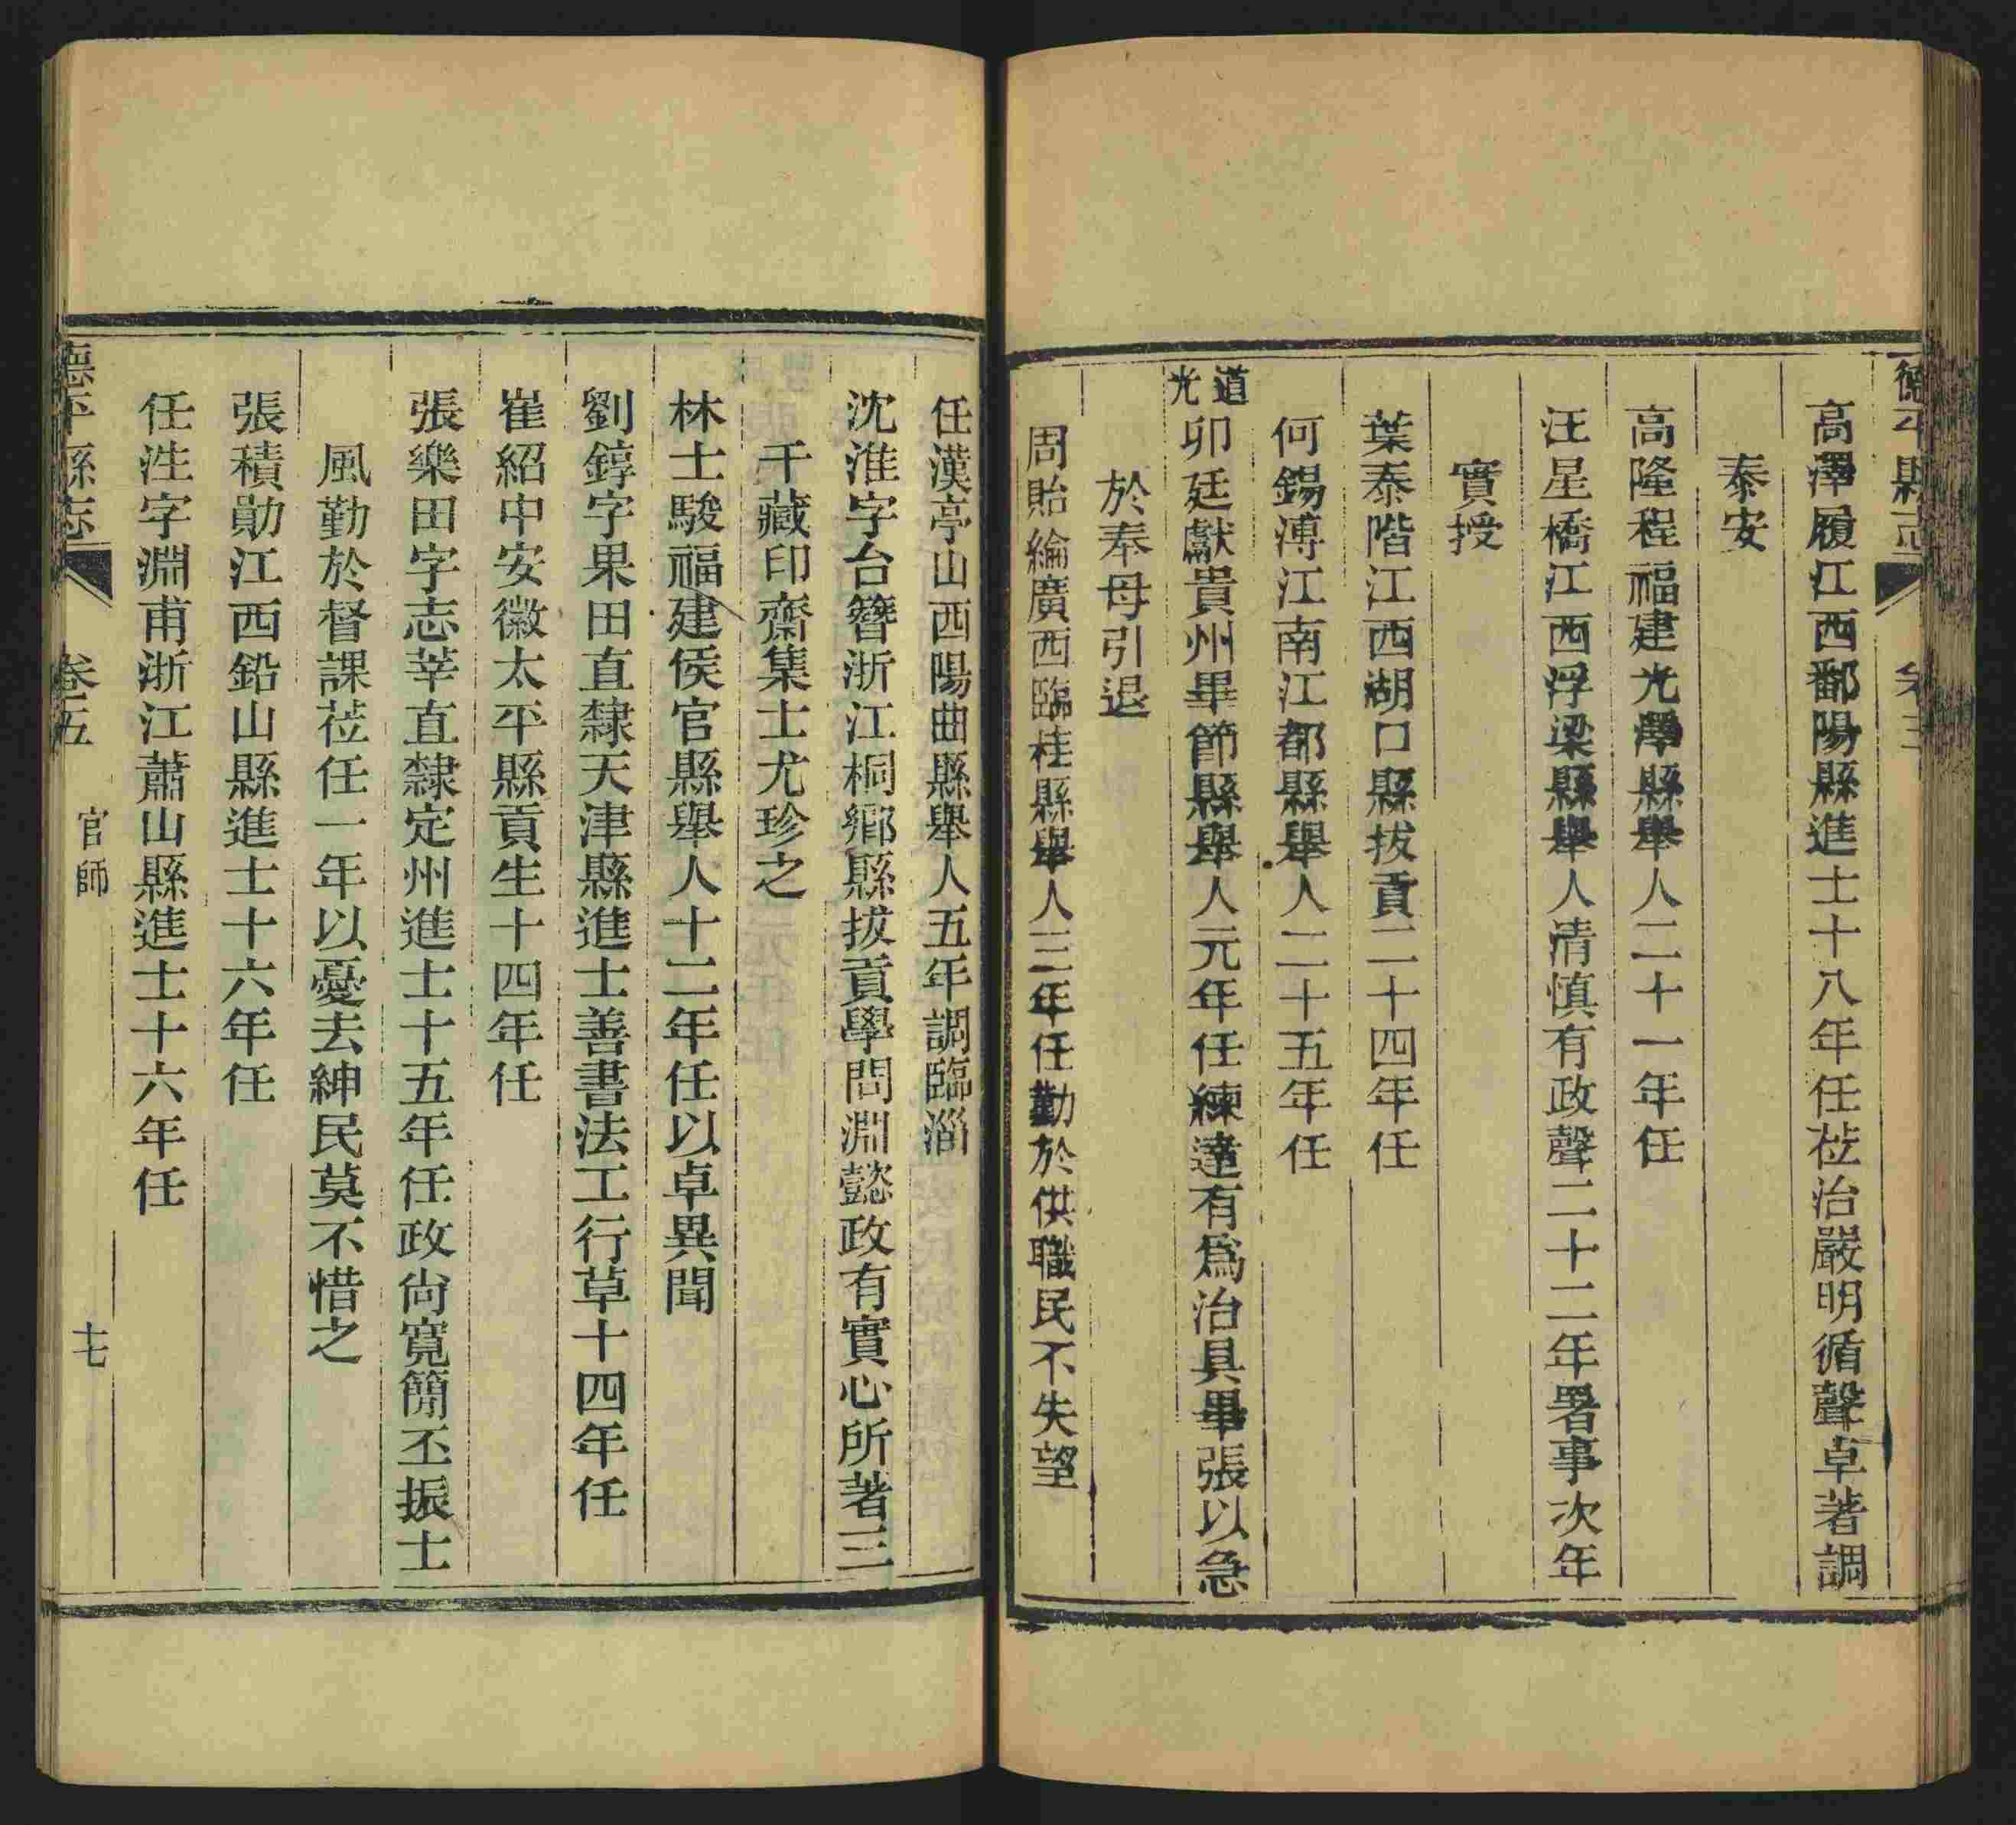 德平縣志
高澤履江西鄱陽縣進士十八年任莅治嚴明循聲卓著調
泰安
高隆程福建光澤縣舉人二十一年任
汪星橋江西浮梁縣舉人清慎有政聲二十二年署事次年
實授
葉泰階江西湖口縣拔貢二十四年任
何錫溥江南江都縣舉人二十五年任
道光
卯廷獻貴州畢節縣舉人元年任練達有爲治具畢張以急
於奉母引退
周貽綸廣西臨桂縣舉人三年任勤於供職民不失望
任漢亭山西陽曲縣舉人五年調臨淄
沈淮字台簪浙江桐鄉縣拔貢學問淵懿政有實心所著三
千藏印齋集士尤珍之
林士駿福建侯官縣舉人十二年任以卓異聞
劉錞字果田直隸天津縣進士善書法工行草十四年任
崔紹中安徽太平縣貢生十四年任
張樂田字志莘直隸定州進士十五年任政尙寬簡丕振士
風勤於督課莅任一年以憂去紳民莫不惜之
張積勛江西鉛山縣進士十六年任
任泩字淵甫浙江蕭山縣進士十六年任
德平縣志 卷五 官師 十七